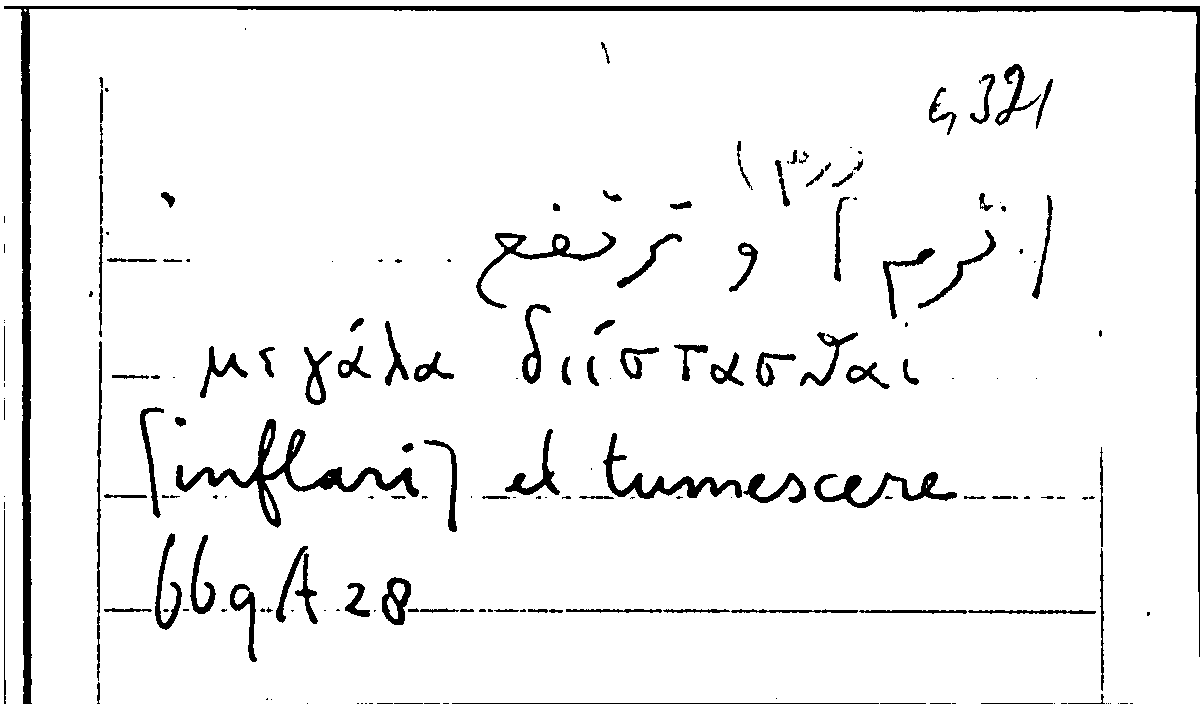 321
(ورم)
[ترم] و ترتفع
μεγάλα διίστασθαι
[inflari] et tumescere
669 A 28